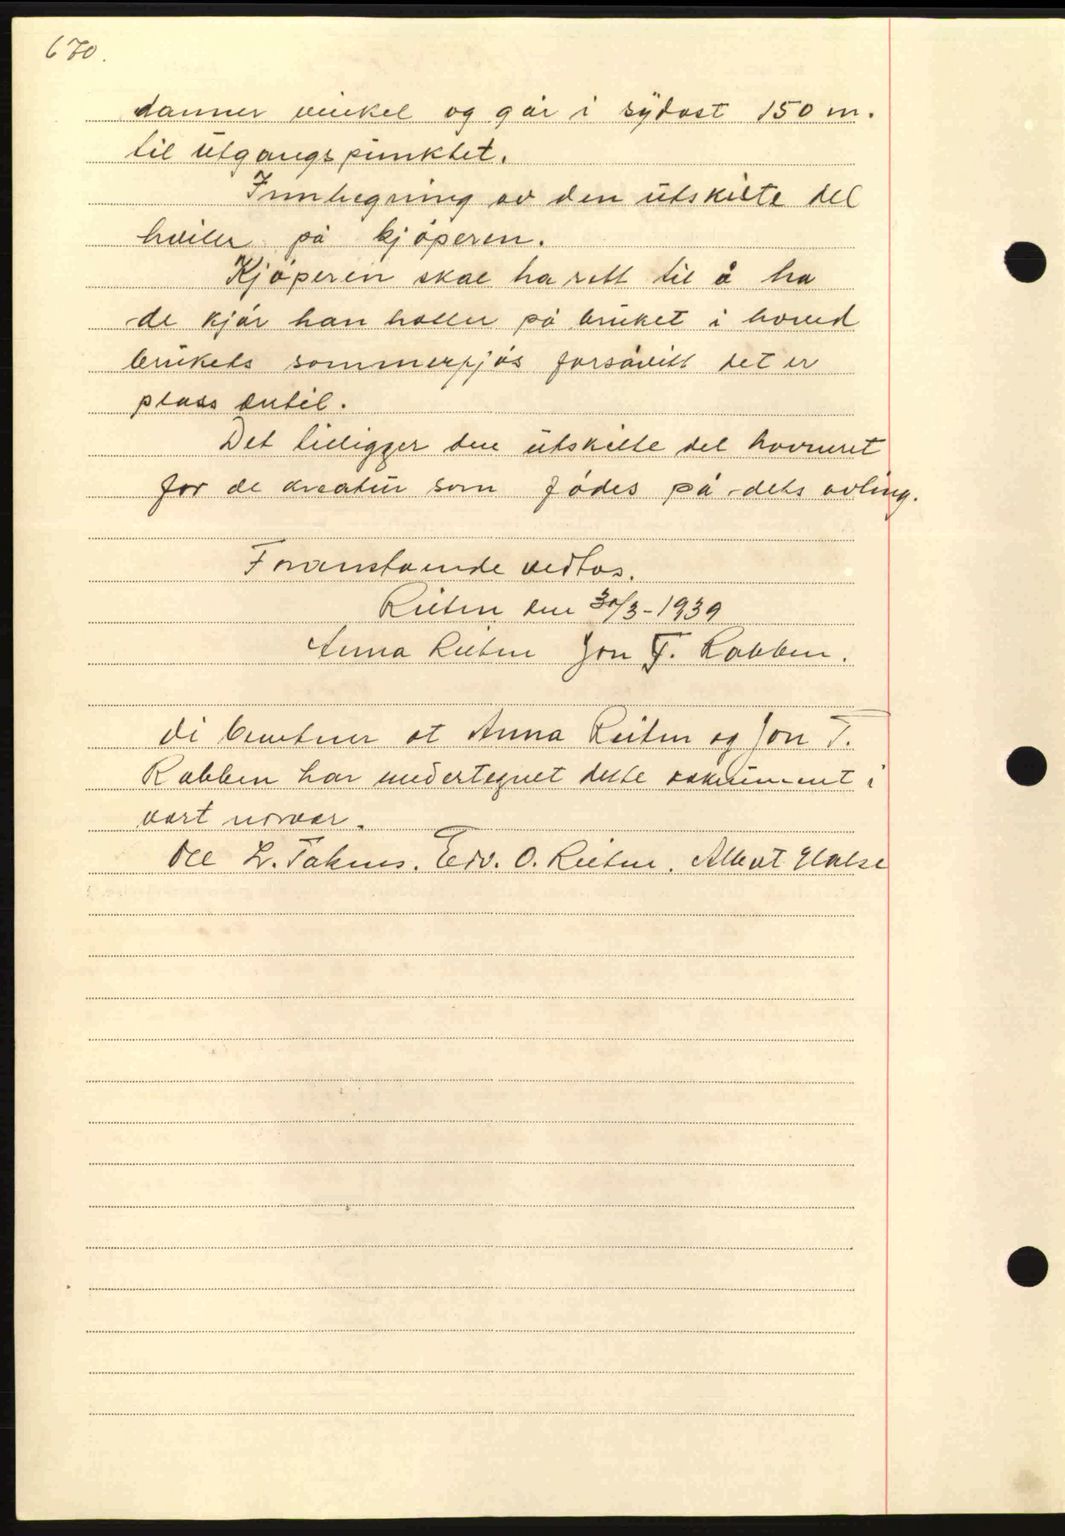 670.
danner vinkel og går i sydost 150 m.
til utgangspunktet.
Innhegning av den utskilte del
hviler på kjøperen.
Kjøperen skal ha rett til å ha
de kjør han holder på bruket i hoved
brukets sommerfjøs forsåvitt det er
plass dertil.
Det tilligger den utskilte del havneret
for de kreatur som fødes på dets avling.
Foranstående vedtas.
Reiten den 30/3-1939
Anna Reiten Jon T. Rabben.
Vi bevitner at Anna Reiten og Jon T.
Rabben har undertegnet dette dokument i
vort nærvær.
Ole L. Edv. O. Reiten. Albert Halse